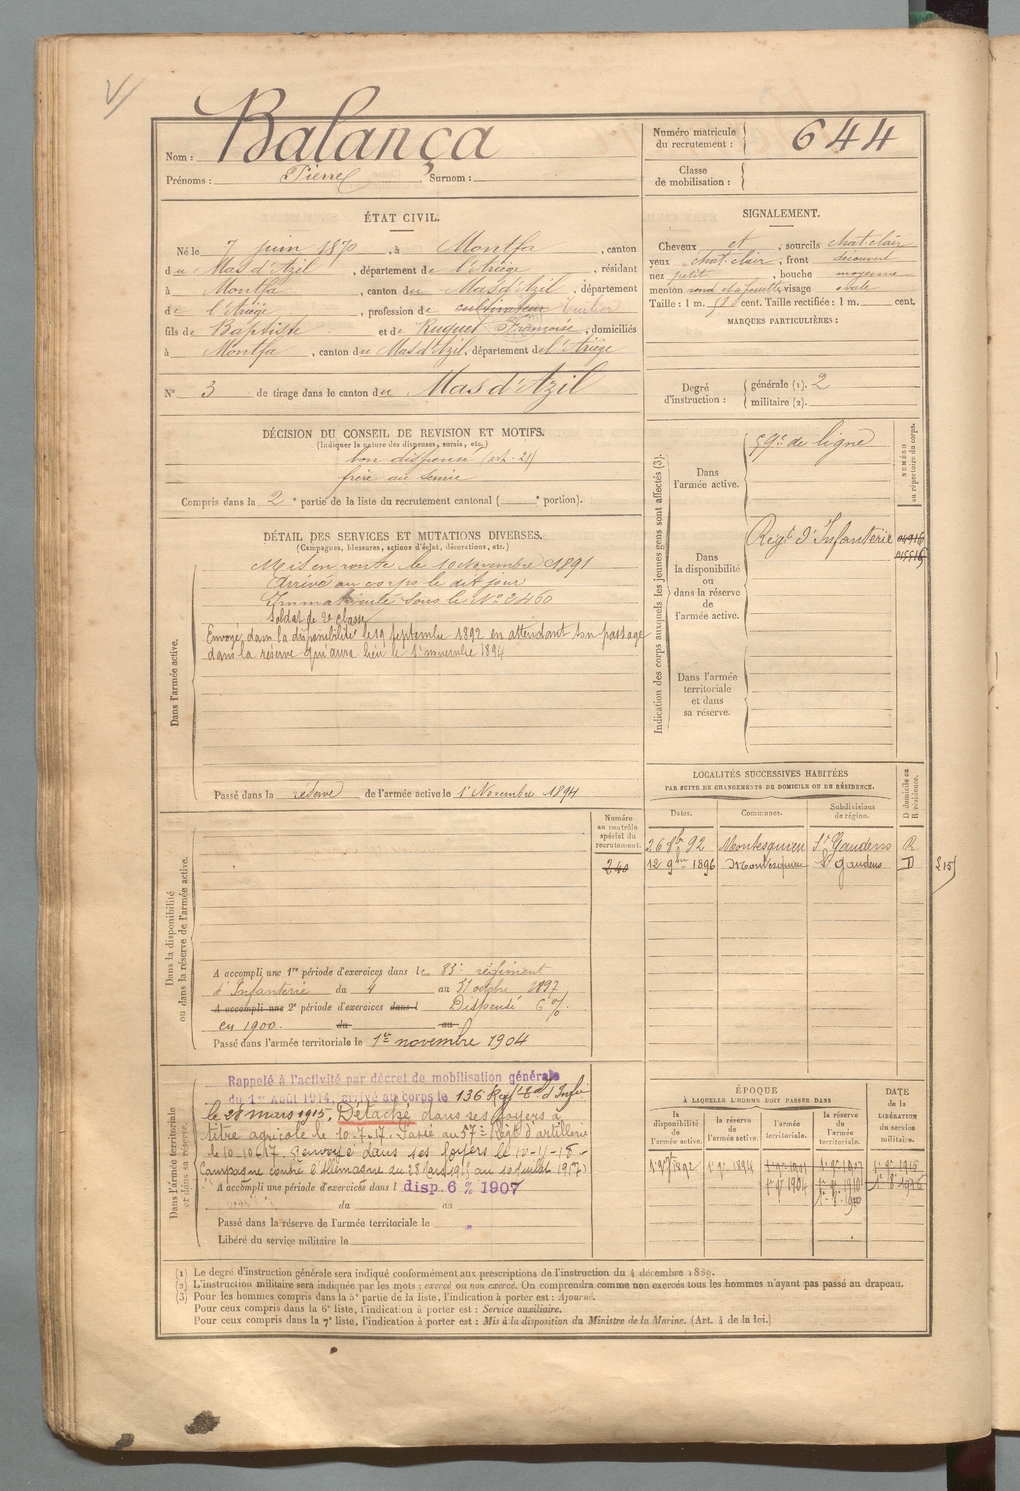 Nom : Balança
Prénoms : Pierre Surnom :
Numéro matricule du recrutement : 644
Classe de mobilisation :
ÉTAT CIVIL.
Né le 7 juin 1870, à Montfa, canton
du Mas d'Azil, département de l'Ariège, résidant
à Montfa, canton du Mas d'Azil, département
de l'Ariège, profession de cultivateur
fils de Baptiste et de Ruguet Françoise, domiciliés
à Montfa, canton du Mas d'Azil, département de l'Ariège
N° 3 de tirage dans le canton du Mas d'Azil
SIGNALEMENT.
Cheveux et, sourcils chat. clair
yeux chat. clair, front découvert
nez petit, bouche moyenne
menton rond et à fossette, visage ovale
Taille : 1 m. 58 cent. Taille rectifiée : 1 m. cent.
MARQUES PARTICULIÈRES :
Degré d'instruction : générale (1). 2
militaire (2).
DÉCISION DU CONSEIL DE REVISION ET MOTIFS.
(Indiquer la nature des dispenses, sursis, etc.)
bon dispensé (art. 21)
frère au service
Compris dans la 2e partie de la liste du recrutement cantonal ( e portion).
DÉTAIL DES SERVICES ET MUTATIONS DIVERSES.
(Campagnes, blessures, actions d'éclat, décorations, etc.)
Dans l'armée active.
Mis en route le 10 novembre 1891
Arrivé au corps le dit jour
Immatriculé sous le N° 2460
Soldat de 2e classe
Envoyé dans la disponibilité le 19 septembre 1892 en attendant son passage
dans la réserve qui aura lieu le 1er novembre 1894
Passé dans la réserve de l'armée active le 1er Novembre 1894
Indication des corps auxquels les jeunes gens sont affectés (3).
NUMÉRO au répertoire du corps.
Dans l'armée active.
59e de ligne
Dans la disponibilité ou dans la réserve de l'armée active.
Regt d'Infanterie
Dans l'armée territoriale et dans sa réserve.
LOCALITÉS SUCCESSIVES HABITÉES
PAR SUITE DE CHANGEMENTS DE DOMICILE OU DE RÉSIDENCE.
Dates. Communes. Subdivisions de région. D domicile ou R résidence.
26 8bre 92 Montesquieu St Gaudens R
12 9bre 1896 Montesquieu St Gaudens D
215
Dans la disponibilité ou dans la réserve de l'armée active.
Numéro au contrôle spécial du recrutement.
240
A accompli une 1re période d'exercices dans le 83e régiment
d'Infanterie du 4 au 31 octobre 1897
A accompli une 2e période d'exercices dans l Dispensé 6%
en 1900. du au
Passé dans l'armée territoriale le 1er novembre 1904
Dans l'armée territoriale et dans sa réserve.
Rappelé à l'activité par décret de mobilisation générale
du 1er Août 1914, arrivé au corps le 136 Regt d'Infie
le 28 mars 1915. Détaché dans ses foyers à
titre agricole le 10-7-17. Passé au 57e Regt d'artillerie
le 10-10-17. Renvoyé dans ses foyers le 10-11-18.
Campagne contre l'Allemagne du 28 Mars 1915 au 10 juillet 1917
A accompli une période d'exercices dans l disp. 6 % 1907
du au
Passé dans la réserve de l'armée territoriale le
Libéré du service militaire le
ÉPOQUE
À LAQUELLE L'HOMME DOIT PASSER DANS
DATE de la LIBÉRATION du service militaire.
la disponibilité de l'armée active. la réserve de l'armée active. l'armée territoriale. la réserve de l'armée territoriale.
1892 1er 9bre 1894 1er 9bre 1904
(1) Le degré d'instruction générale sera indiqué conformément aux prescriptions de l'instruction du 4 décembre 1889.
(2) L'instruction militaire sera indiquée par les mots : exercé ou non exercé. On comprendra comme non exercés tous les hommes n'ayant pas passé au drapeau.
(3) Pour les hommes compris dans la 5e partie de la liste, l'indication à porter est : Ajourné.
Pour ceux compris dans la 6e liste, l'indication à porter est : Service auxiliaire.
Pour ceux compris dans la 7e liste, l'indication à porter est : Mis à la disposition du Ministre de la Marine. (Art. 4 de la loi.)